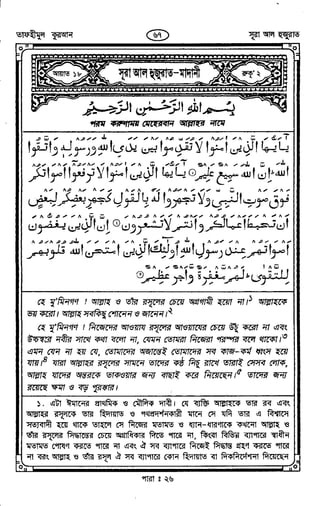 তাফহীমুল কুরআন ৬৭ সূরা আল হুজুরাত
আয়াত ১৮ সূরা আল হুজুরাত-মাদানী রুকূ’ ২
بِسْمِ اللّٰهِ الرَّحْمٰنِ الرَّحِيْمِ
পরম করুণাময় মেহেরবান আল্লাহর নামে
يٰٓاَيُّهَا الَّذِيْنَ اٰمَنُوْا لَا تُقَدِّمُوْا بَيْنَ يَدَيِ اللّٰهِ وَرَسُوْلِهٖ وَاتَّقُوا
اللّٰهَ ؕ اِنَّ اللّٰهَ سَمِيْعٌ عَلِيْمٌ ① يٰٓاَيُّهَا الَّذِيْنَ اٰمَنُوْا لَا تَرْفَعُوْٓا اَصْوَاتَكُمْ
فَوْقَ صَوْتِ النَّبِيِّ وَلَا تَجْهَرُوْا لَهٗ بِالْقَوْلِ كَجَهْرِ بَعْضِكُمْ لِبَعْضٍ
اَنْ تَحْبَطَ اَعْمَالُكُمْ وَاَنْتُمْ لَا تَشْعُرُوْنَ ② اِنَّ الَّذِيْنَ يَغُضُّوْنَ
اَصْوَاتَهُمْ عِنْدَ رَسُوْلِ اللّٰهِ اُولٰٓئِكَ الَّذِيْنَ امْتَحَنَ اللّٰهُ قُلُوْبَهُمْ
لِلتَّقْوٰى ؕ لَهُمْ مَّغْفِرَةٌ وَّاَجْرٌ عَظِيْمٌ ③
হে মু’মিনগণ ! আল্লাহ ও তাঁর রসূলের চেয়ে অগ্রগামী হয়ো না।১ আল্লাহকে
ভয় করো। আল্লাহ সবকিছু শোনেন ও জানেন।২
হে মু’মিনগণ ! নিজেদের আওয়ায রসূলের আওয়াযের চেয়ে উঁচু করো না এবং
উচ্চস্বরে নবীর সাথে কথা বলো না, যেমন তোমরা নিজেরা পরস্পর বলে থাকো।৩
এমন যেন না হয় যে, তোমাদের অজান্তেই তোমাদের সব কাজ-কর্ম ধ্বংস হয়ে
যায়।৪ যারা আল্লাহর রসূলের সামনে তাদের কণ্ঠ নিচু রাখে তারাই সেসব লোক,
আল্লাহ যাদের অন্তরকে তাকওয়ার জন্য বাছাই করে নিয়েছেন।৫ তাদের জন্য
রয়েছে ক্ষমা ও বড় পুরস্কার।
১. এটা ঈমানের প্রাথমিক ও মৌলিক দাবী। যে ব্যক্তি আল্লাহকে তার রব এবং
আল্লাহর রসূলকে তার হিদায়াত ও পথপ্রদর্শনকারী মানে সে যদি তার এ বিশ্বাসে
সত্যবাদী হয়ে থাকে তাহলে সে নিজের মতামত ও ধ্যান-ধারণাকে কখনো আল্লাহ ও
তাঁর রসূলের সিদ্ধান্তের চেয়ে অগ্রাধিকার দিতে পারে না, কিংবা বিভিন্ন ব্যাপারে স্বাধীন
মতামত পোষণ করতে পারে না এবং ঐ সব ব্যাপারে নিজেই সিদ্ধান্ত গ্রহণ করতে পারে
না বরং আল্লাহ ও তাঁর রসূল ঐ সব ব্যাপারে কোন হিদায়াত বা দিকনির্দেশনা দিয়েছেন
পারা : ২৬